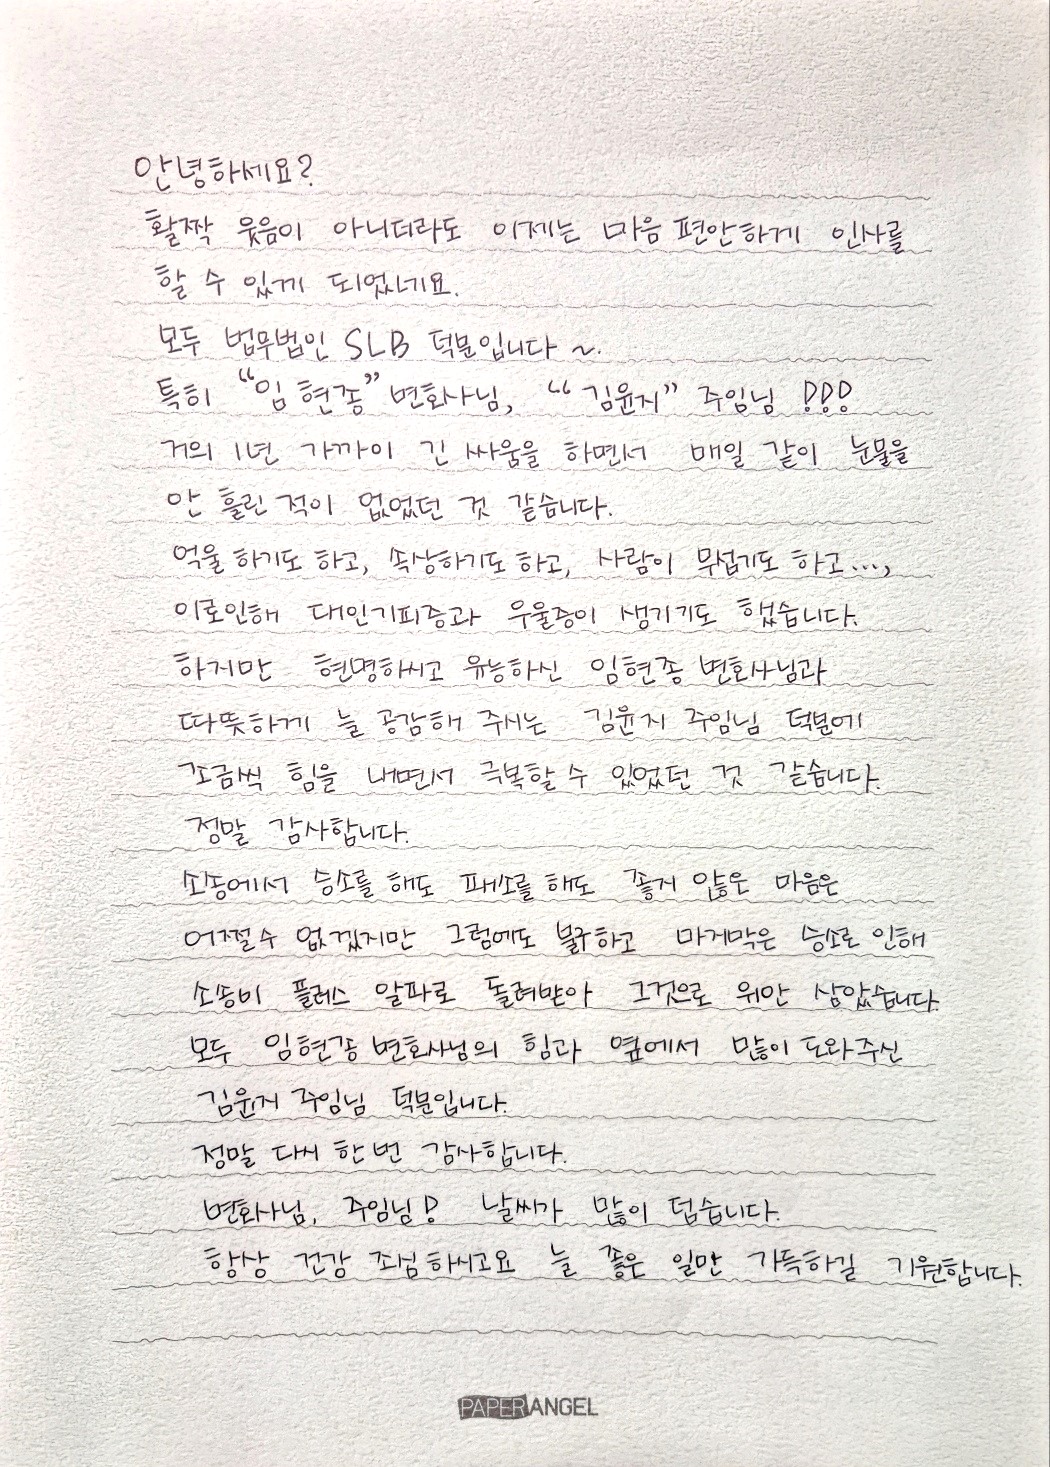 안녕하세요?
활짝 웃음이 아니더라도 이제는 마음 편안하게 인사를
할 수 있게 되었네요.
모두 법무법인 SLB 덕분입니다 ~.
특히 "임현종" 변호사님, "김윤지" 주임님 !!!
거의 1년 가까이 긴 싸움을 하면서 매일 같이 눈물을
안 흘린 적이 없었던 것 같습니다.
억울하기도 하고, 속상하기도 하고, 사람이 무섭기도 하고...,
이로인해 대인기피증과 우울증이 생기기도 했습니다.
하지만 현명하시고 유능하신 임현종 변호사님과
따뜻하게 늘 공감해 주시는 김윤지 주임님 덕분에
조금씩 힘을 내면서 극복할 수 있었던 것 같습니다.
정말 감사합니다.
소송에서 승소를 해도 패소를 해도 좋지 않은 마음은
어쩔 수 없겠지만 그럼에도 불구하고 마지막은 승소로 인해
소송비 플러스 알파로 돌려받아 그것으로 위안 삼았습니다.
모두 임현종 변호사님의 힘과 옆에서 많이 도와주신
김윤지 주임님 덕분입니다.
정말 다시 한 번 감사합니다.
변호사님, 주임님! 날씨가 많이 덥습니다.
항상 건강 조심하시고요 늘 좋은 일만 가득하길 기원합니다.
PAPER ANGEL